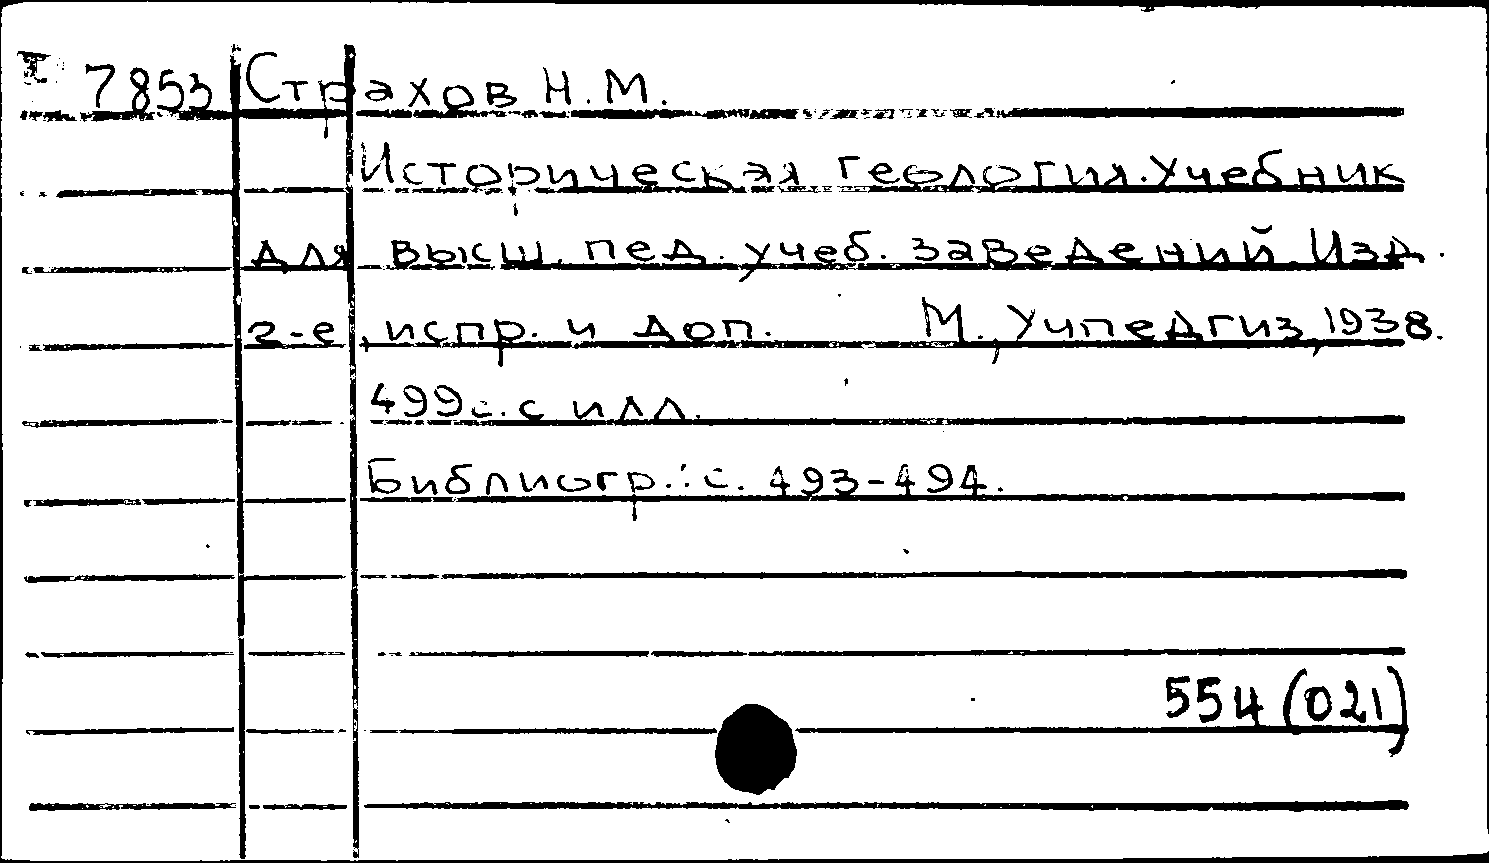 I 7853 Страхов Н.М.
Историческая геология. Учебник
для высш. пед. учеб. заведений. Изд.
2-е, испр. и доп. М., Учпедгиз, 1938.
499с. с илл.
Библиогр.: с. 493-494.
554(021)